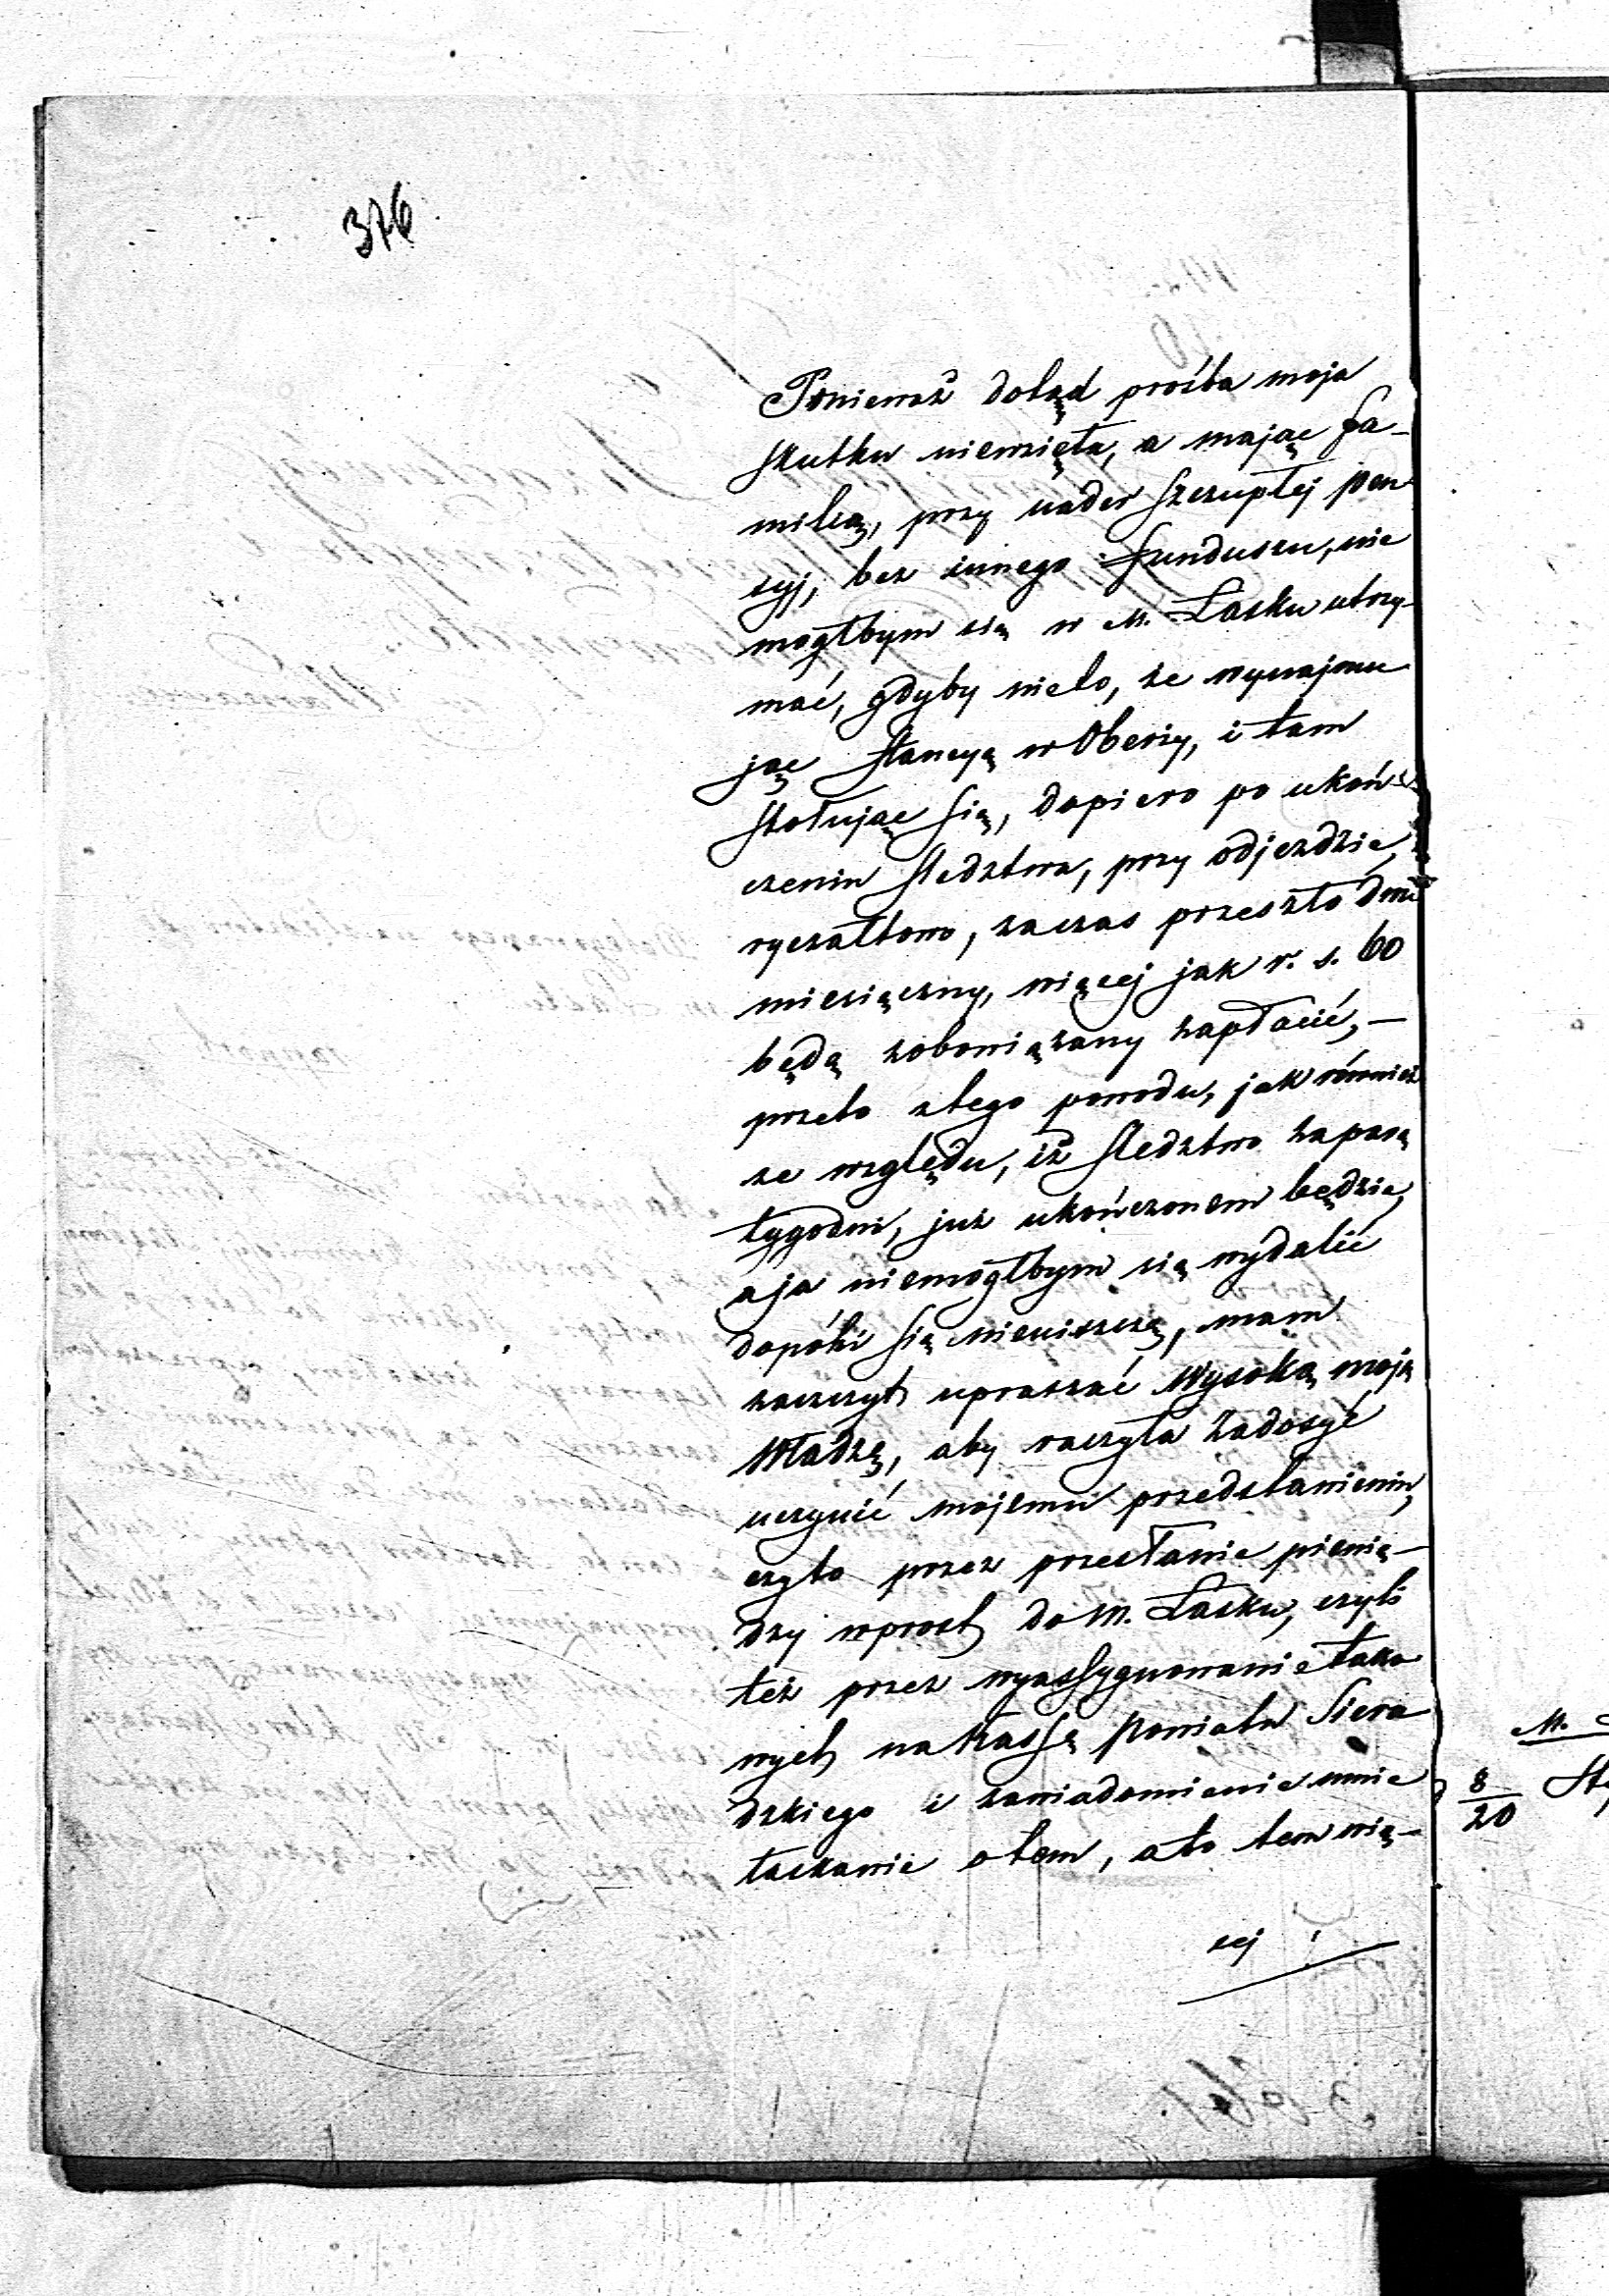 376
Ponieważ dotąd prośba moja
skutku niewzięła, a mając fa-
milią, przy nader szczupłej pen
syj, bez innego funduszu, nie
mógłbym się w M. Łasku utrzy-
mać, gdyby nieto, że wynajmu
jąc stancyą w Oberży, i tam
stołując się, dopiero po ukoń
czeniu sledztwa, przy odjezdzie,
ryczałtowo, zaczas przeszło dwu
miesięczny, więcej jak r. s. 60
będę zobowiązany zapłacić, —
przeto ztego powodu, jak również
ze względu, iż sledztwo zaparę
tygodni, już ukończonem będzie,
aja niemógłbym się wydalić
dopóki się nieuiszczę, mam
zaszczyt upraszać Wysoką moję
Władzę, aby raczyła zadosyć
uczynić mojemu przedstawieniu,
czyto przez przesłanie pienię-
dzy wprost do M. Łasku, czyli
też przez wyassygnowanie tako
wych na Kassę Powiatu Siera
dzkiego i zawiadomienie mnie
łaskawie otem, ato tem wię-
cej
M.
8/20 Sty